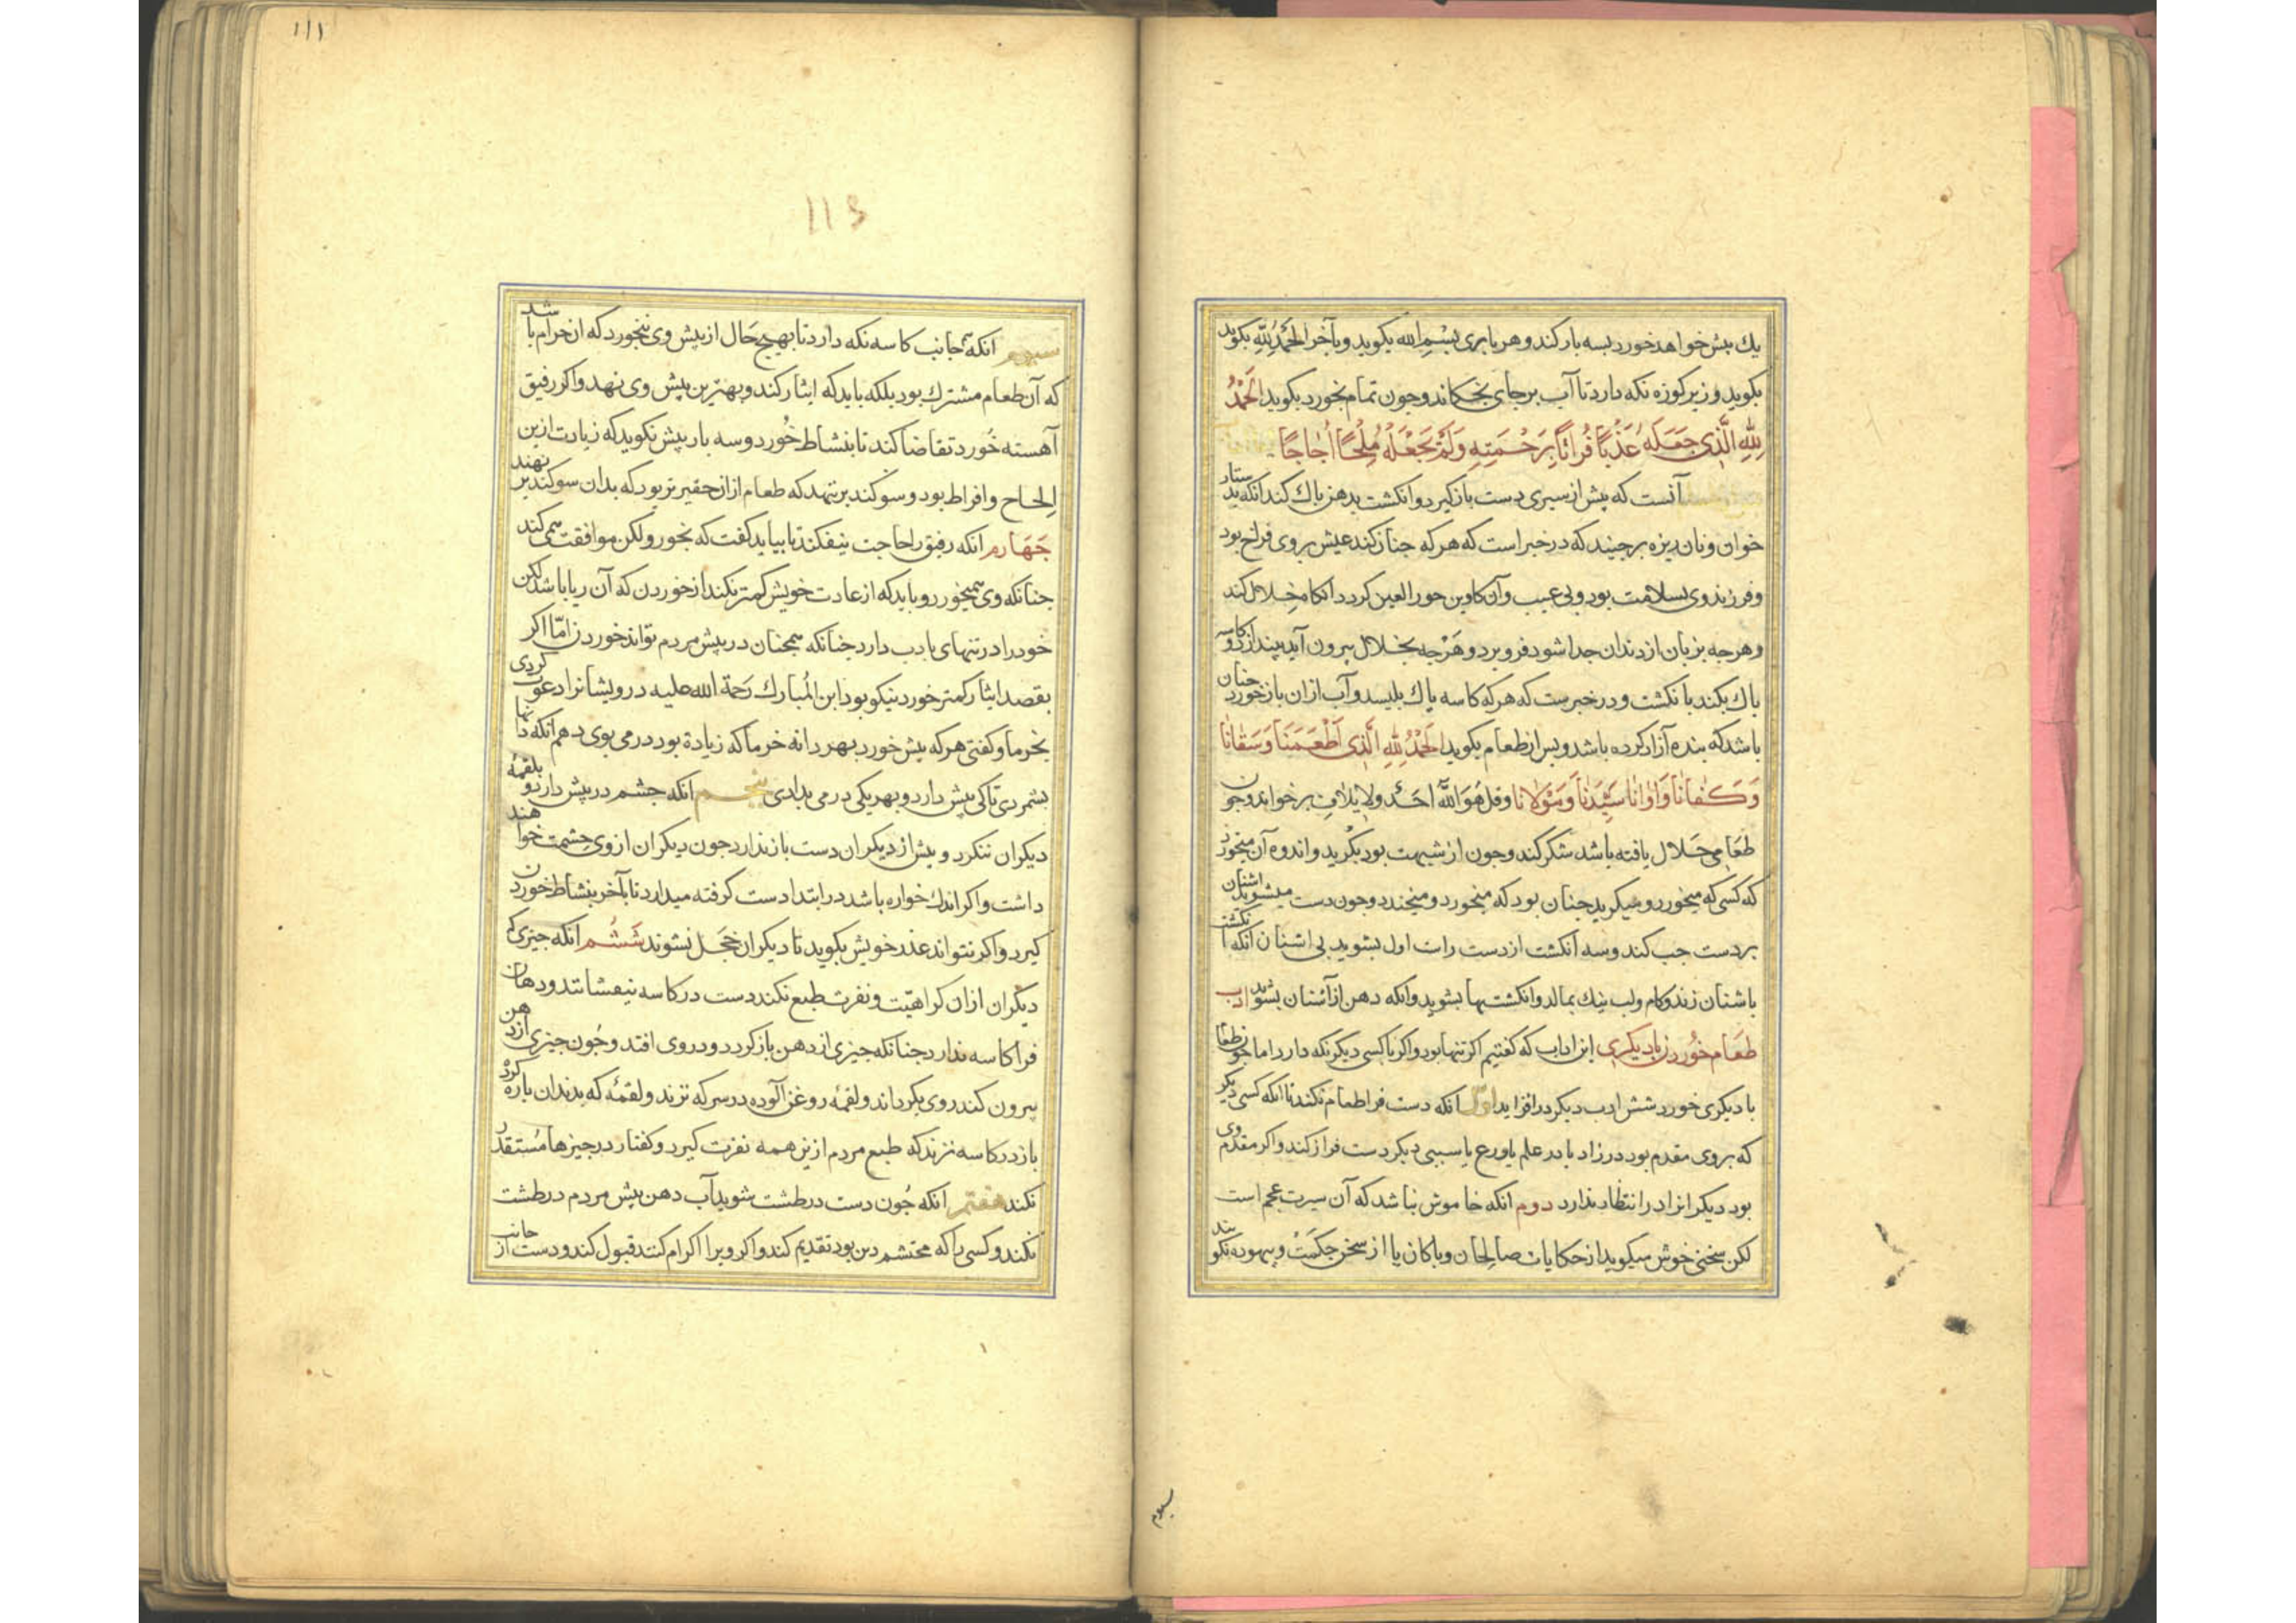 یك بیش خواهد خورد بسه بار کند و هر باری بسم الله بکوید و بآخر الحمد لله بکوید
بکوید و زیر کوزه نکه دارد تا آب بر جای نچکاند و چون تمام بخورد بکوید الحَمْدُ
لِلّهِ الَّذِی جَعَلَهُ عَذْبًا فُرَاتًا بِرَحْمَتِهِ وَلَمْ یَجْعَلْهُ مِلْحًا اُجَاجًا
آنست که پیش از سیری دست باز کیرد و انکشت بدهن پاك کند انکه بدستار
خوان و نان ریزه برچیند که در خبر است که هر که چنان کند عیش بر وی فراخ بود
و فرزند وی بسلامت بود و بی عیب و آن کاوین حور العین کردد انکاه خلال کند
و هرچه بزبان از دندان جدا شود فرو برد و هرچه بخلال بیرون آید بیندازد و کاسه
پاك بکند بانکشت و در خبرست که هر که کاسه پاك بلیسد و آب ازان باز خورد چنان
باشد که بنده آزاد کرده باشد و پس از طعام بکوید الحَمْدُ لِلّهِ الَّذِی اَطْعَمَنَا وَسَقَانَا
وَکَفَانَا وَاٰوَانَا سَیِّدَنَا وَمَوْلَانَا و قل هُوَ اللّٰهُ اَحَد و لایلاف برخواند و چون
طعامی حلال یافته باشد شکر کند و چون از شبهت بود بکرید و اندوه آن میخورد
که کسی که میخورد و میکرید چنان بود که میخورد و میخندد و چون دست میشوید اشنان
بر دست چپ کند و سه انکشت از دست راست اول بشوید بی اشنان انکه انکشت
باشنان زند و کام و لب نیك بمالد و انکشتها بشوید وانکه دهن از اشنان بشوید ادب
طعام خوردن با دیکری این اداب که کفتیم اکر تنها بود و اکر با کسی دیکر نکه دارد اما چون طعام
با دیکری خورد شش ادب دیکر درافزاید اوّل انکه دست فرا طعام نکند تا انکه کسی دیکر
که بروی مقدم بود در زاد یا در علم یا ورع یا سببی دیکر دست فراز کند و اکر مقدم وی
بود دیکرانرا در انتظار ندارد دوم انکه خاموش نباشد که آن سیرت عجم است
لکن سخنی خوش میکوید از حکایات صالحان و پاکان یا از سخن حکمت و بیهوده نکوید
سیوم
١١١
113
سیوم انکه جانب کاسه نکه دارد تا بهیچ حال از پیش وی نخورد که ان حرام باشد
که آن طعام مشترك بود بلکه باید که ایثار کند و بهترین پیش وی نهد و اکر رفیق
آهسته خورد تقاضا کند تا بنشاط خورد و سه بار بیش نکوید که زیادت ازین
الحاح و افراط بود و سوکند بر ننهد که طعام ازان حقیرتر بود که بدان سوکند بر نهند
چهارم انکه رفیق را حاجت نیفکند تا بیاید کفت که بخور ولکن موافقت همی کند
چنانکه وی همیخورد و باید که از عادت خویش کمتر نکند از خوردن که آن ریا باشد لکن
خود را در تنهای بادب دارد چنانکه همچنان در پیش مردم تواند خوردن امّا اکر
بقصد ایثار کمتر خورد نیکو بود ابن المبارك رحمة الله علیه درویشانرا دعوت کردی
بخرما و کفتی هر که بیش خورد بهر دانه خرما که زیادة بود درمی بوی دهم انکه دانها
بشمردی تا کی بیش دارد و بهر یکی درمی بدادی پنجم انکه چشم در پیش دارد و بلقمهٔ
دیکران ننکرد و پیش از دیکران دست باز ندارد چون دیکران از وی حشمت خواهند
داشت و اکر اندك خواره باشد در ابتدا دست کرفته میدارد تا بآخر بنشاط خوردن
کیرد و اکر نتواند عذر خویش بکوید تا دیکران خجل نشوند ششم انکه چیزی که
دیکران ازان کراهیّت و نفرت طبع نکند دست در کاسه نیفشاند و دهان
فرا کاسه ندارد چنانکه چیزی از دهن باز کردد و در وی افتد و چون چیزی از دهن
بیرون کند روی بکرداند و لقمهٔ روغن آلوده در سرکه نزند و لقمهٔ که بدندان پاره کرد
باز در کاسه نزند که طبع مردم ازین همه نفرت کیرد و کفتار در چیزها مُستقذر
نکند هفتم انکه چون دست در طشت شوید آب دهن پیش مردم در طشت
نکند و کسی را که محتشم دین بود تقدیم کند و اکر ویرا اکرام کنند قبول کند و دست از جانب